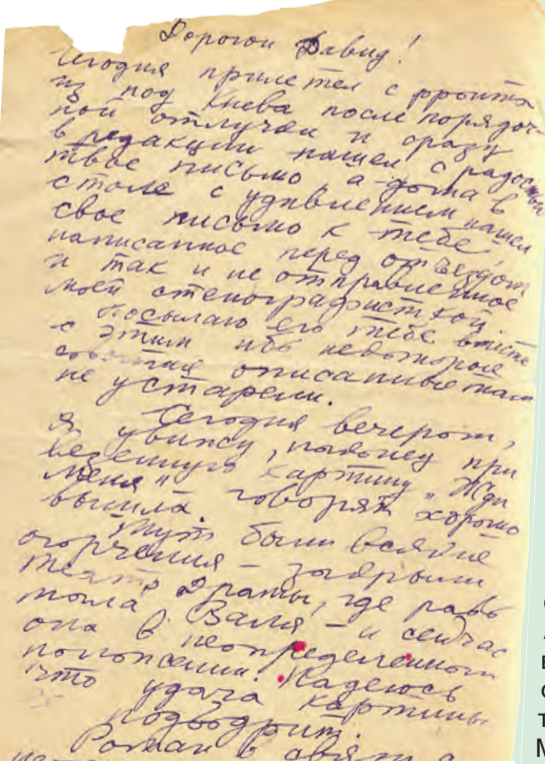 Дорогой Давид!
Сегодня прилетел с фронта
из под Киева после порядоч-
ной отлучки и сразу
в редакции нашел с радостью
твое письмо а дома в
столе с удивлением нашел
свое письмо к тебе
написанное перед отъездом
и так и не отправленное
моей стенографисткой.
Посылаю его тебе вместе
с этим ибо некоторые
события описанные там
не устарели.
Сегодня вечером,
я увижу, наконец при
везенную картину „Жди
меня" говорят хорошо
вышла.
Тут были всякие
огорчения – закрыли
театр Драмы, где рабо
тала Валя – и сейчас
она в неопределенном
положении. Надеюсь
что удача картины
подбодрит.
Роман в связи с